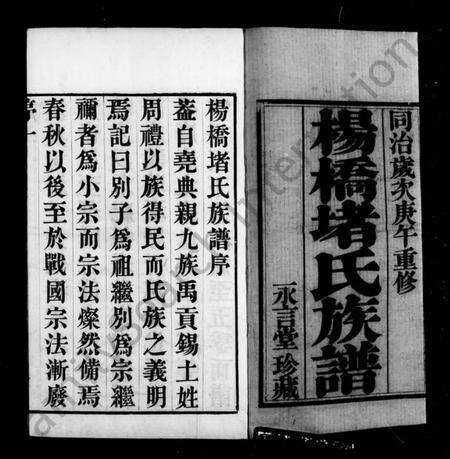 同治歲次庚午重修
楊橋堵氏族譜
永言堂珍藏
楊橋堵氏族譜序
葢自堯典親九族禹貢錫土姓
周禮以族得民而氏族之義明
焉記曰別子為祖繼別為宗繼
禰者為小宗而宗法燦然備焉
春秋以後至於戰國宗法漸廢
序一